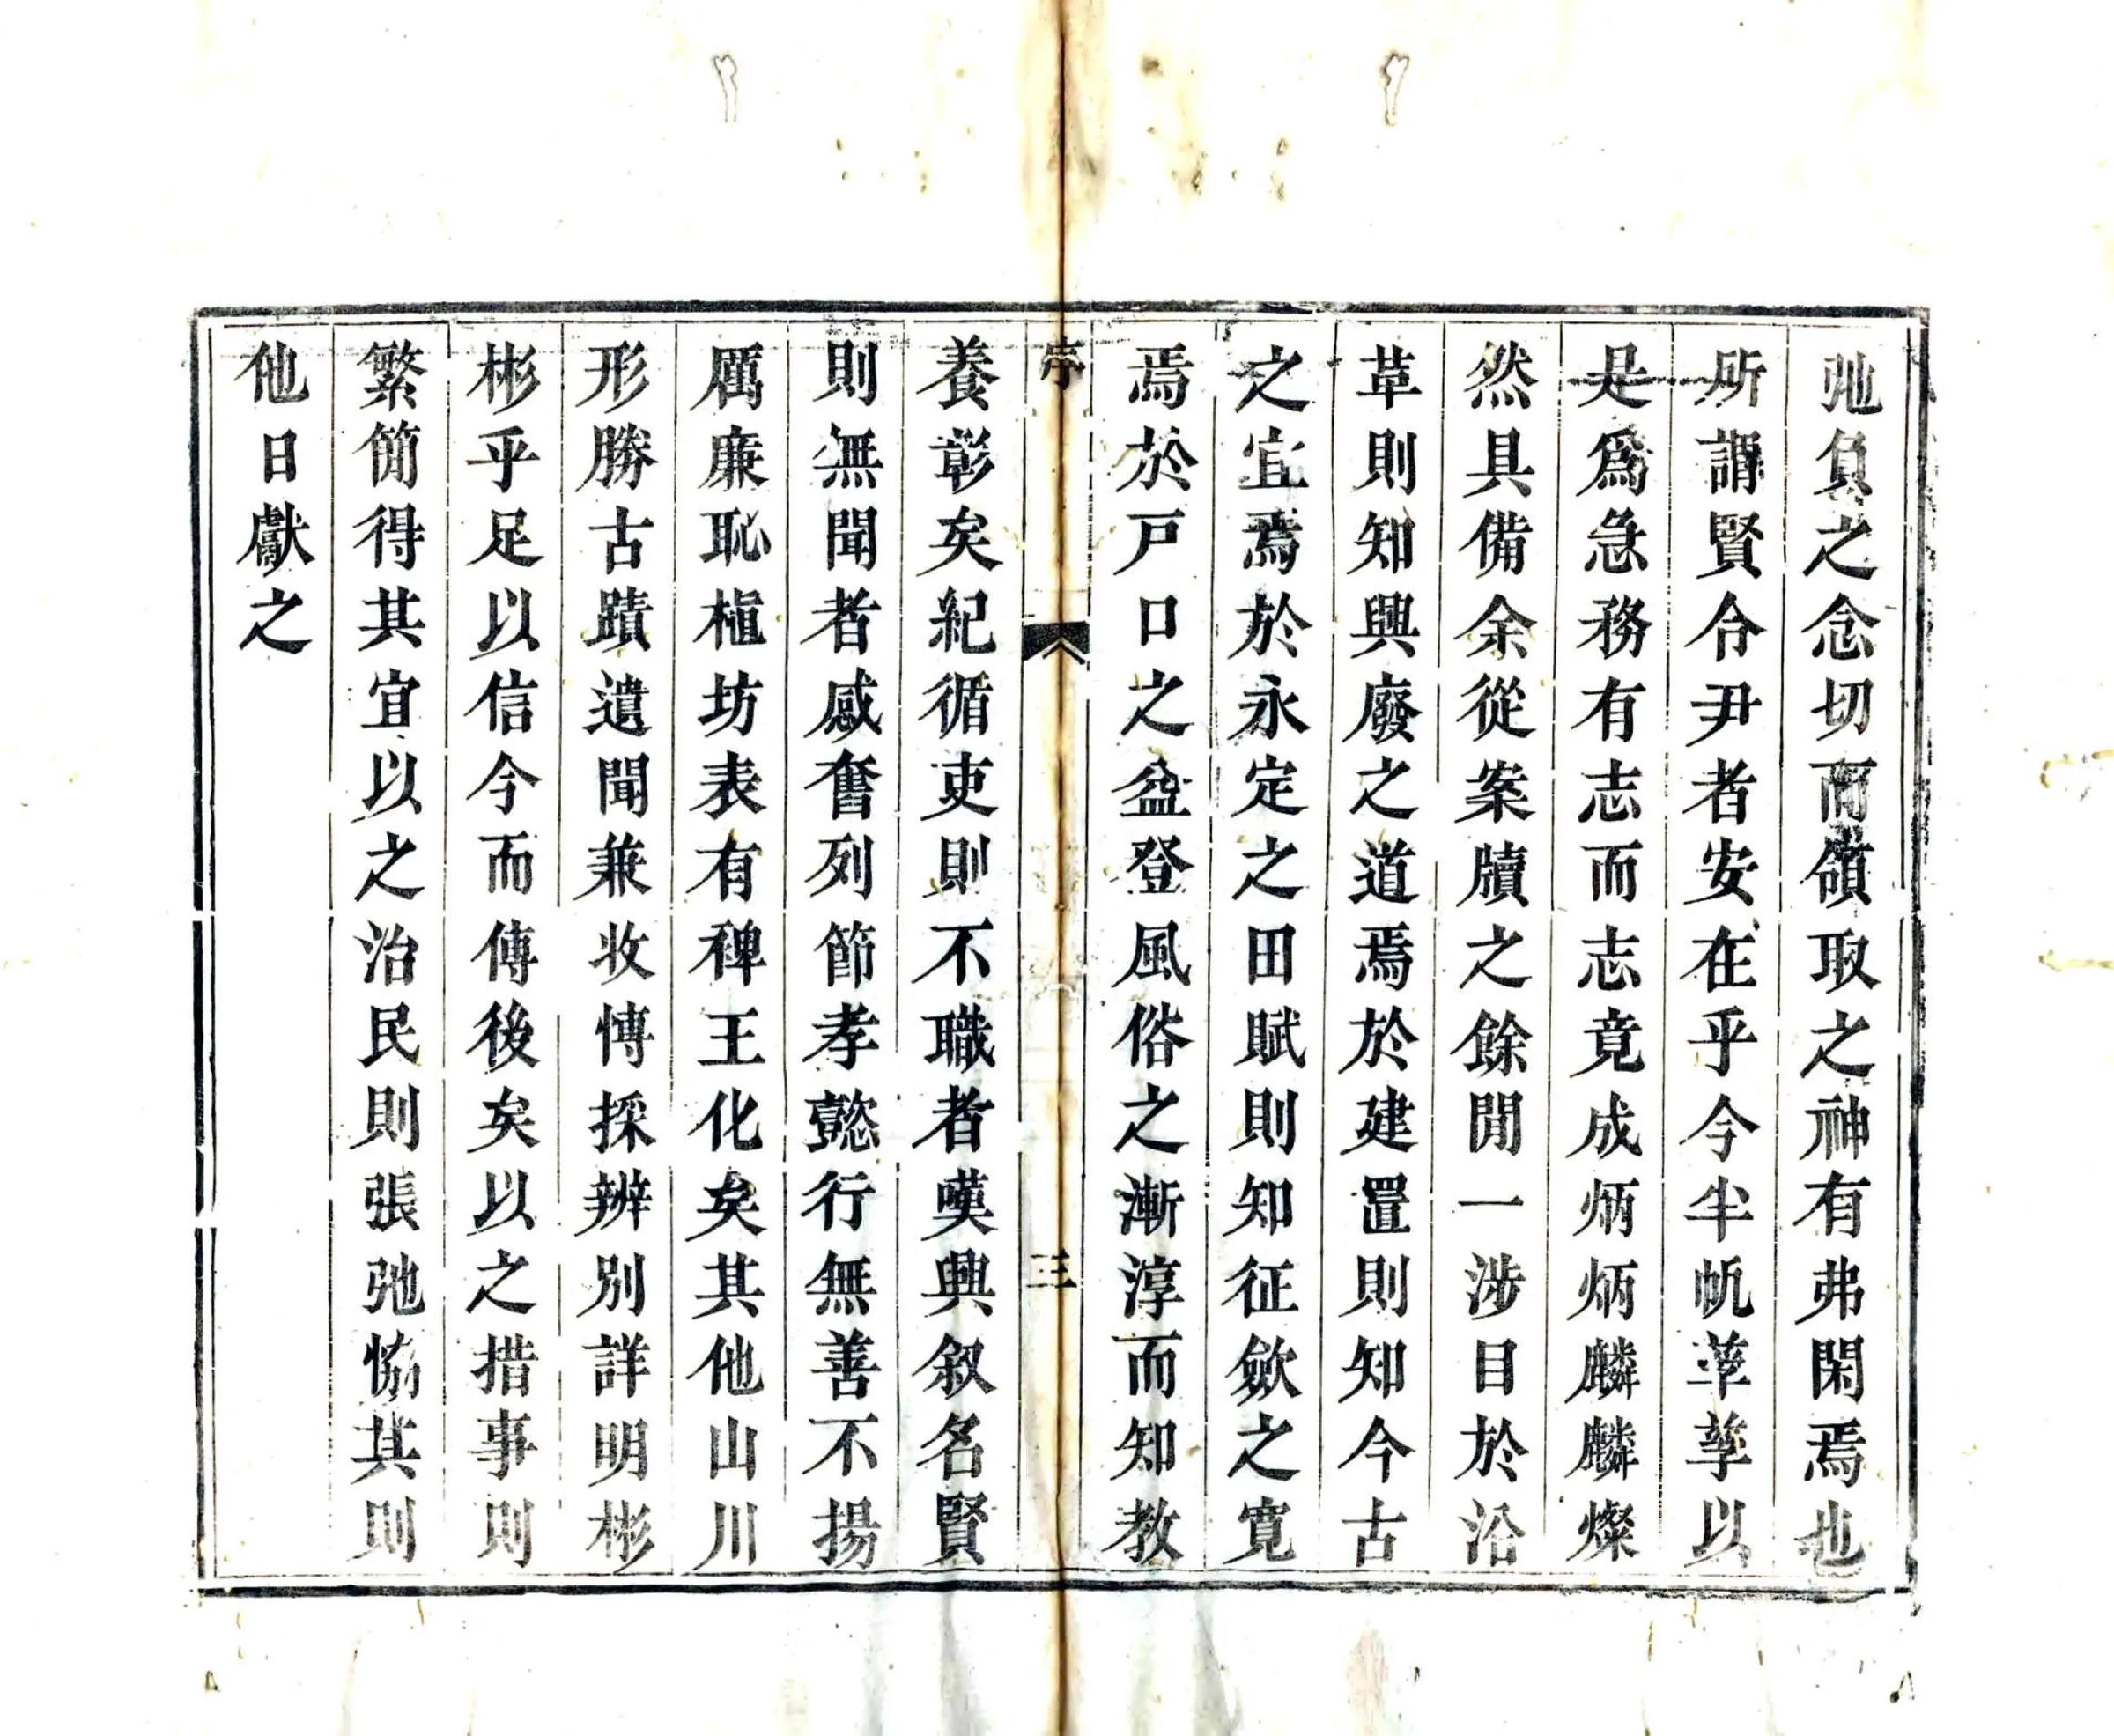 弛負之念切而領取之神有弗閑焉也
所謂賢令尹者安在乎今半帆莘莘以
是爲急務有志而志竟成炳炳麟麟燦
然具備余從案牘之餘閒一涉目於沿
草則知興廢之道焉於建置則知今古
之宜焉於永定之田賦則知征歛之寛
焉於戸口之益登風俗之漸淳而知教
序
三
養彰矣紀循吏則不職者嘆興叙名賢
則無聞者感奮列節孝懿行無善不揚
厲廉恥植坊表有稗王化矣其他山川
形勝古蹟遺聞兼收愽採辨别詳明彬
彬乎足以信今而傳後矣以之措事則
繁簡得其宜以之治民則張弛恊其則
他日獻之